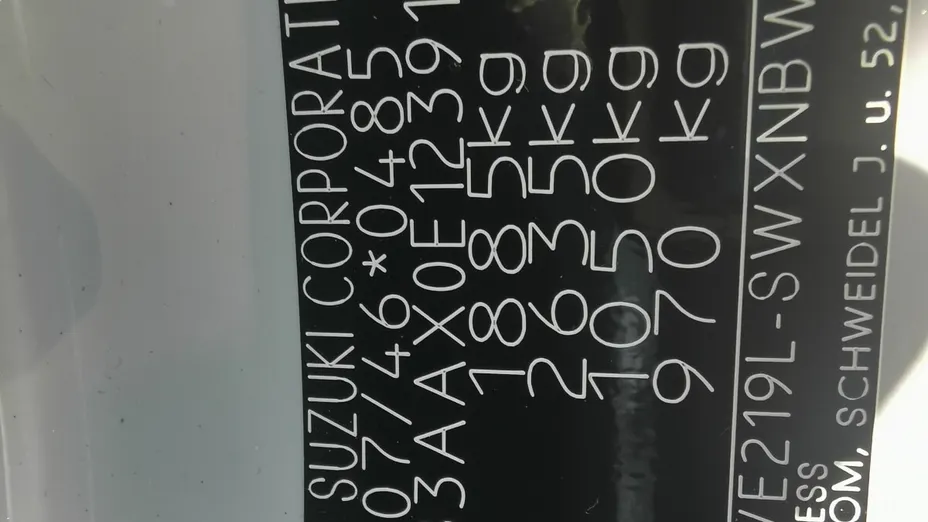 SUZUKI CORPORATI
07/46*0485
3AAX0E12391
1885kg
2635kg
1050kg
970kg
VE219L-SWXNBW
ESS
OM, SCHWEIDEL J. u. 52,